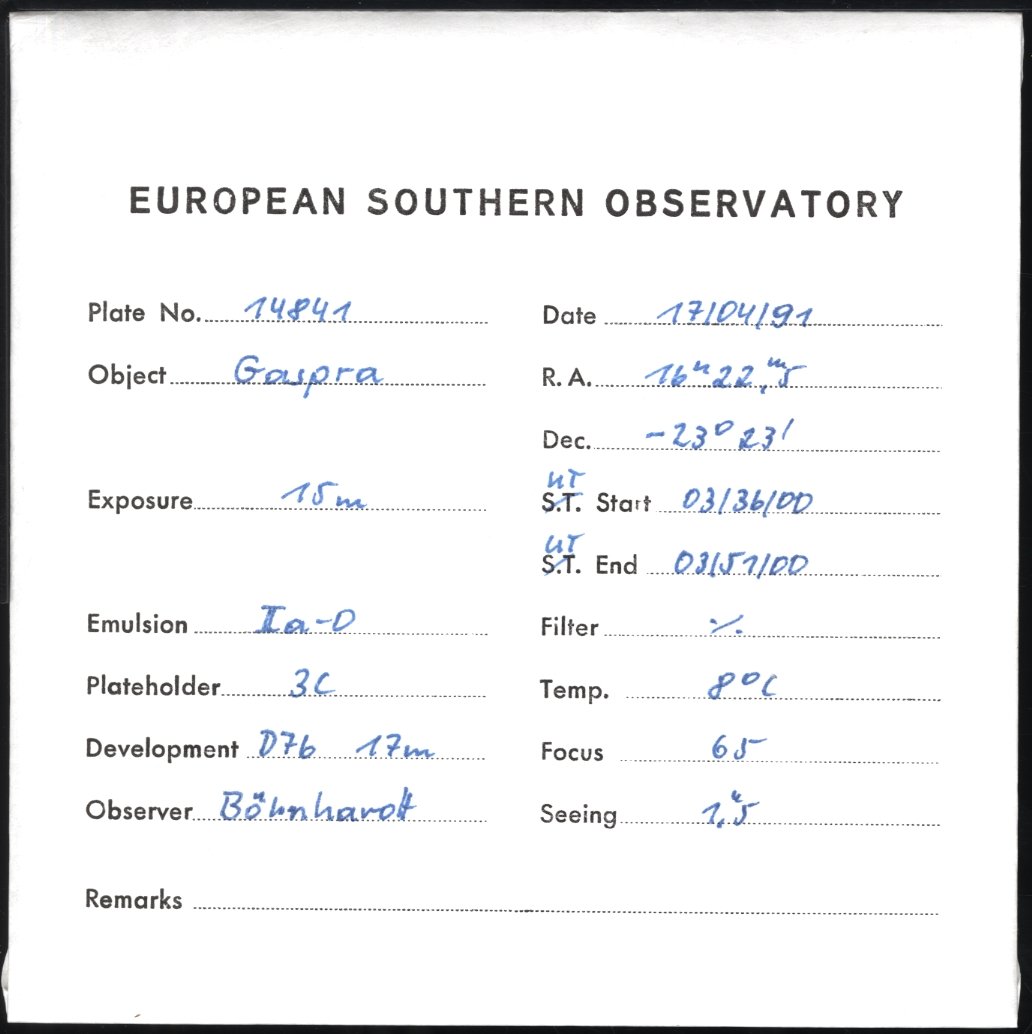 EUROPEAN SOUTHERN OBSERVATORY
Plate No. 14841 Date 17/04/91
Object Gaspra R. A. 16ʰ22,ᵐ5
Dec. -23° 23'
UT
Exposure 15m S.T. Start 03/36/00
UT
S.T. End 03/51/00
Emulsion IIa-O Filter ·/.
Plateholder 3C Temp. 8°C
Development D76 17m Focus 65
Observer Böhnhardt Seeing 1,"5
Remarks